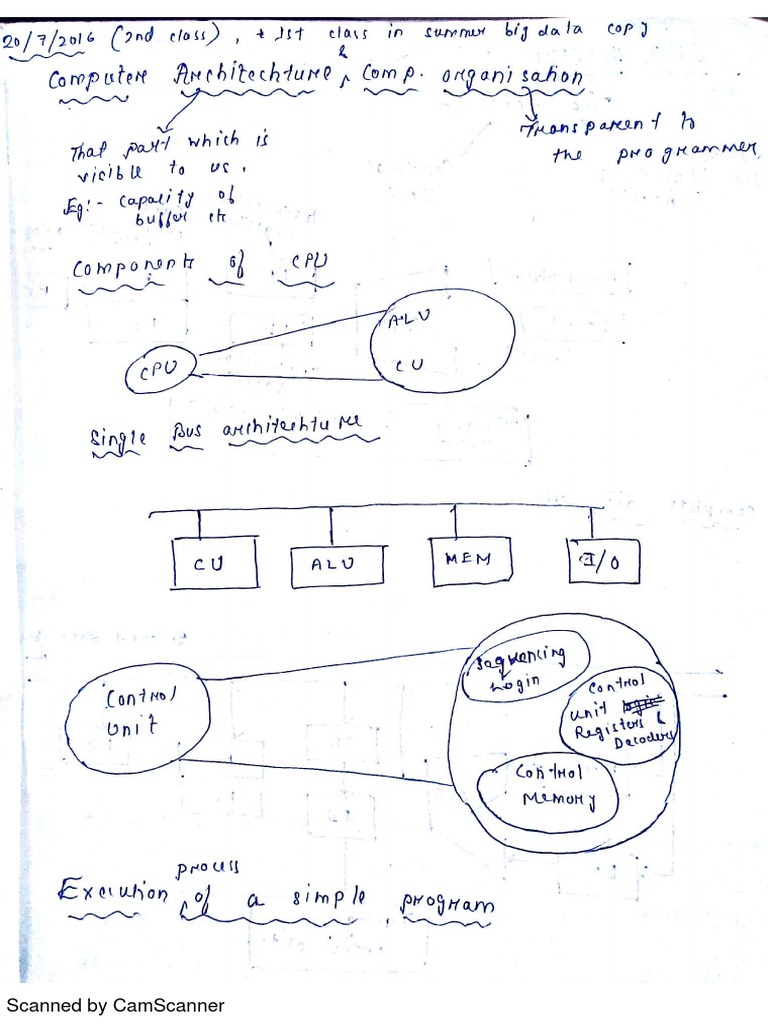 20/7/2016 (2nd class), + 1st class in summer big data copy
Computer Architechture & Comp. organisation
That part which is
vicible to us.
Eg:- capacity of
buffer etc
Transparent to
the programmer
Components of CPU
CPU
ALU
CU
Single Bus architechture
CU
ALU
MEM
I/O
Control
Unit
Sequencing
Login
Control
unit logic
Registers &
Decoders
Control
Memory
Execution process of a simple program
Scanned by CamScanner